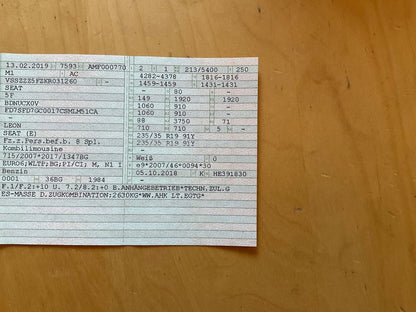 13.02.2019 7593 AMF000770 2 1 213/5400 250
M1 AC 4282-4378 1816-1816
VSSZZZ5FZKR031260 - 1459-1459 1431-1431
SEAT - 80 -
5F 149 1920 1920
BDNUCX0V 1060 910 -
FD7SFD7GC0017CSMLM51CA 1060 910 -
- 88 3750 71
LEON 710 710 5 -
SEAT (E) 235/35 R19 91Y
Fz.z.Pers.bef.b. 8 Spl. 235/35 R19 91Y
Kombilimousine -
715/2007*2017/1347BG Weiß 0
EURO6;WLTP;BG;PI/CI; M, N1 I e9*2007/46*0094*30
Benzin 05.10.2018 K HE391830
0001 36BG 1984 -
F.1/F.2:+10 U. 7.2/8.2:+0 B.ANHÄNGEBETRIEB*TECHN.ZUL.G
ES-MASSE D.ZUGKOMBINATION:2630KG*WW.AHK LT.EGTG*